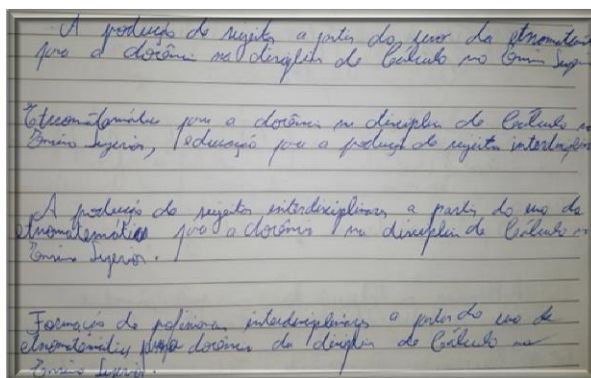 A produção de sujeitos a partir do uso da etnomatemáti
para a docência na disciplina de Cálculo no Ensino Supe
Etnomatemática para a docência na disciplina de Cálculo no
Ensino Superior, educação para a produção de sujeitos interdisciplin
A produção de sujeitos interdisciplinares a partir do uso da
etnomatemática para a docência na disciplina de Cálculo no
Ensino Superior.
Formação de professores interdisciplinares a partir do uso de
etnomatemática para docência da disciplina de Cálculo no
Ensino Superior.